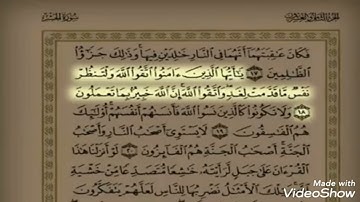 سورة الحشر
الجزء الثامن والعشرون
فَكَانَ عَٰقِبَتَهُمَآ أَنَّهُمَا فِى ٱلنَّارِ خَٰلِدَيْنِ فِيهَا ۚ وَذَٰلِكَ جَزَٰٓؤُا۟
ٱلظَّٰلِمِينَ ١٧ يَٰٓأَيُّهَا ٱلَّذِينَ ءَامَنُوا۟ ٱتَّقُوا۟ ٱللَّهَ وَلْتَنظُرْ
نَفْسٌ مَّا قَدَّمَتْ لِغَدٍ ۖ وَٱتَّقُوا۟ ٱللَّهَ ۚ إِنَّ ٱللَّهَ خَبِيرٌۢ بِمَا تَعْمَلُونَ
١٨ وَلَا تَكُونُوا۟ كَٱلَّذِينَ نَسُوا۟ ٱللَّهَ فَأَنسَىٰهُمْ أَنفُسَهُمْ ۚ أُو۟لَٰٓئِكَ
هُمُ ٱلْفَٰسِقُونَ ١٩ لَا يَسْتَوِىٓ أَصْحَٰبُ ٱلنَّارِ وَأَصْحَٰبُ
ٱلْجَنَّةِ ۚ أَصْحَٰبُ ٱلْجَنَّةِ هُمُ ٱلْفَآئِزُونَ ٢٠ لَوْ أَنزَلْنَا هَٰذَا
ٱلْقُرْءَانَ عَلَىٰ جَبَلٍ لَّرَأَيْتَهُۥ خَٰشِعًا مُّتَصَدِّعًا مِّنْ خَشْيَةِ
ٱللَّهِ ۚ وَتِلْكَ ٱلْأَمْثَٰلُ نَضْرِبُهَا لِلنَّاسِ لَعَلَّهُمْ يَتَفَكَّرُونَ
Made with
VideoShow